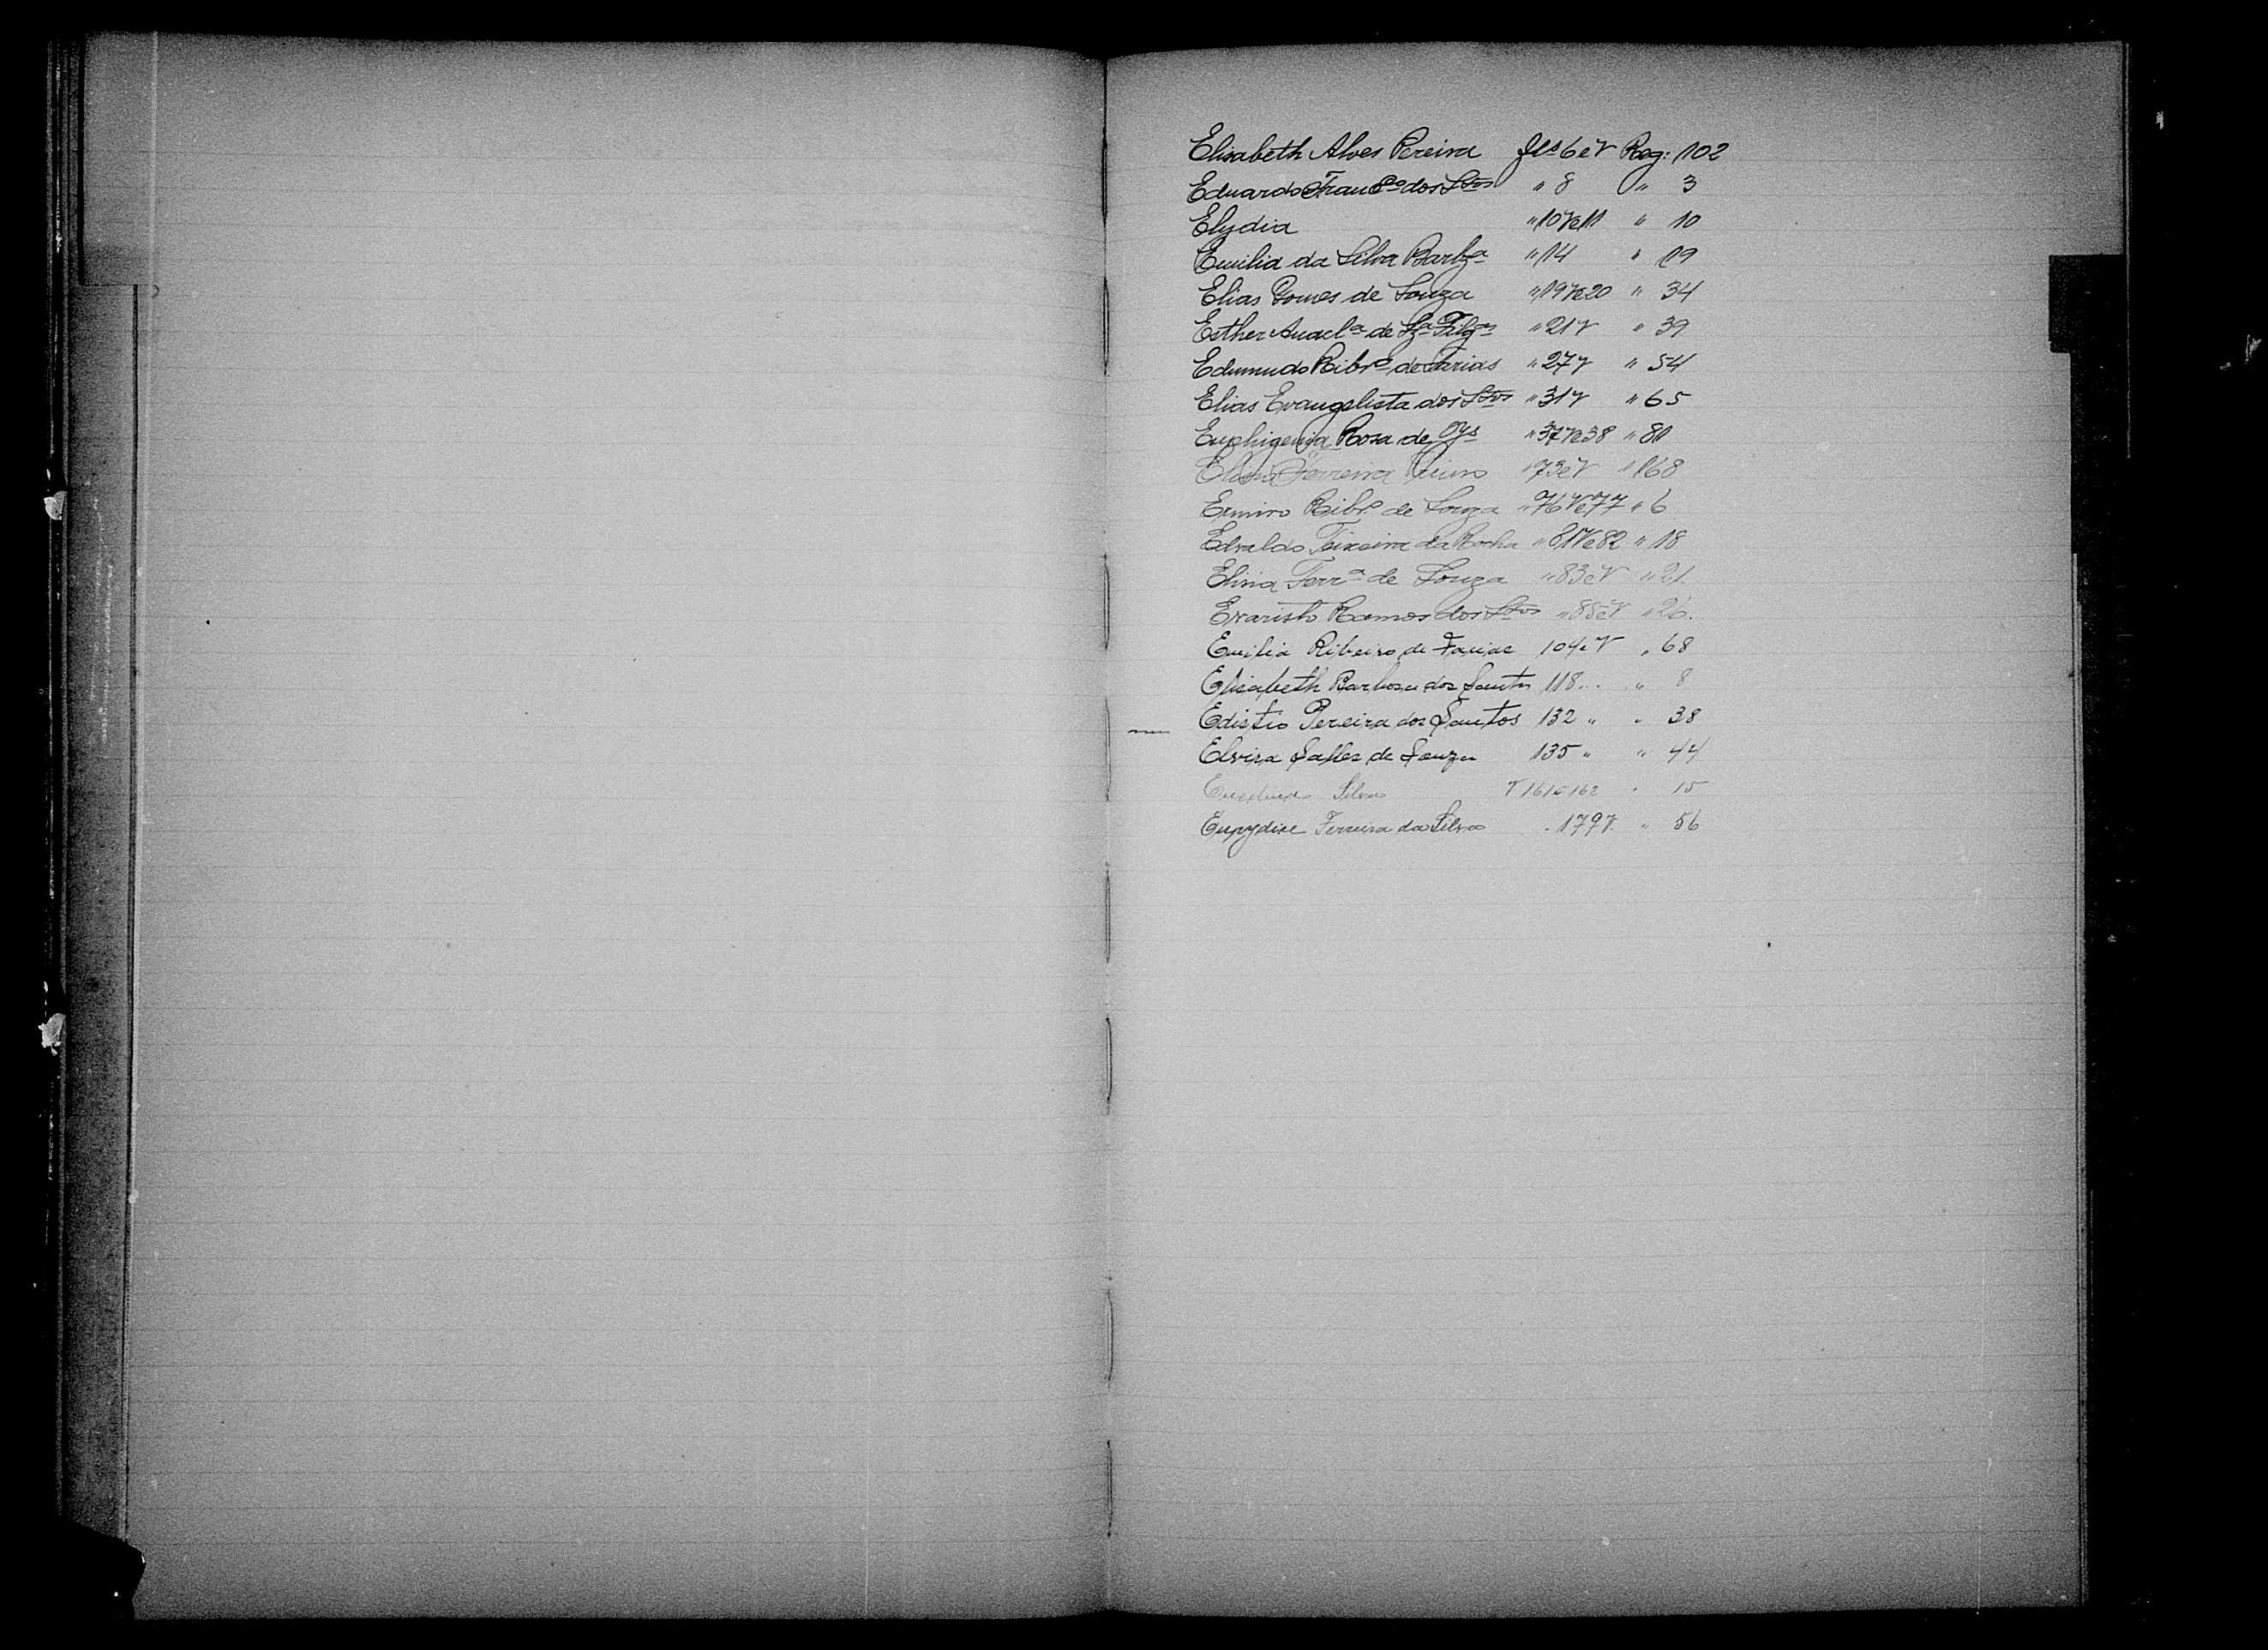 Elisabeth Alves Pereira fls 6 e v Reg: 102
Eduardo Franco dos Stos " 8 " 3
Elydia " 10 v e 11 " 10
Emilia da Silva Barbza " 14 " 19
Elias Gomes de Souza " 19 v e 20 " 34
Esther de Sza " 21 v " 39
Edmundo Ribro de Farias " 27 v " 54
Elias Evangelista dos Stos " 31 v " 65
Euphigenia Rosa de " 37 v e 38 " 81
Ferreira " 73 e v " 168
Ermiro Ribro de Souza " 76 v e 77 " 6
Edvaldo Teixeira da Rocha " 81 v e 82 " 18
Elina Ferra de Souza " 83 e v " 21.
Evaristo Ramos dos Stos " 85 e v " 26.
Emilia Ribeiro de Farias 104 e v " 68
Elisabeth Barbosa dos Santos 118 .. " 8
Edistio Pereira dos Santos 132 " " 38
Elvira Salles de Souza 135 " " 44
Silva v 161 e 162 " 15
Eurydice Ferreira da Silva " 179 v. " 56